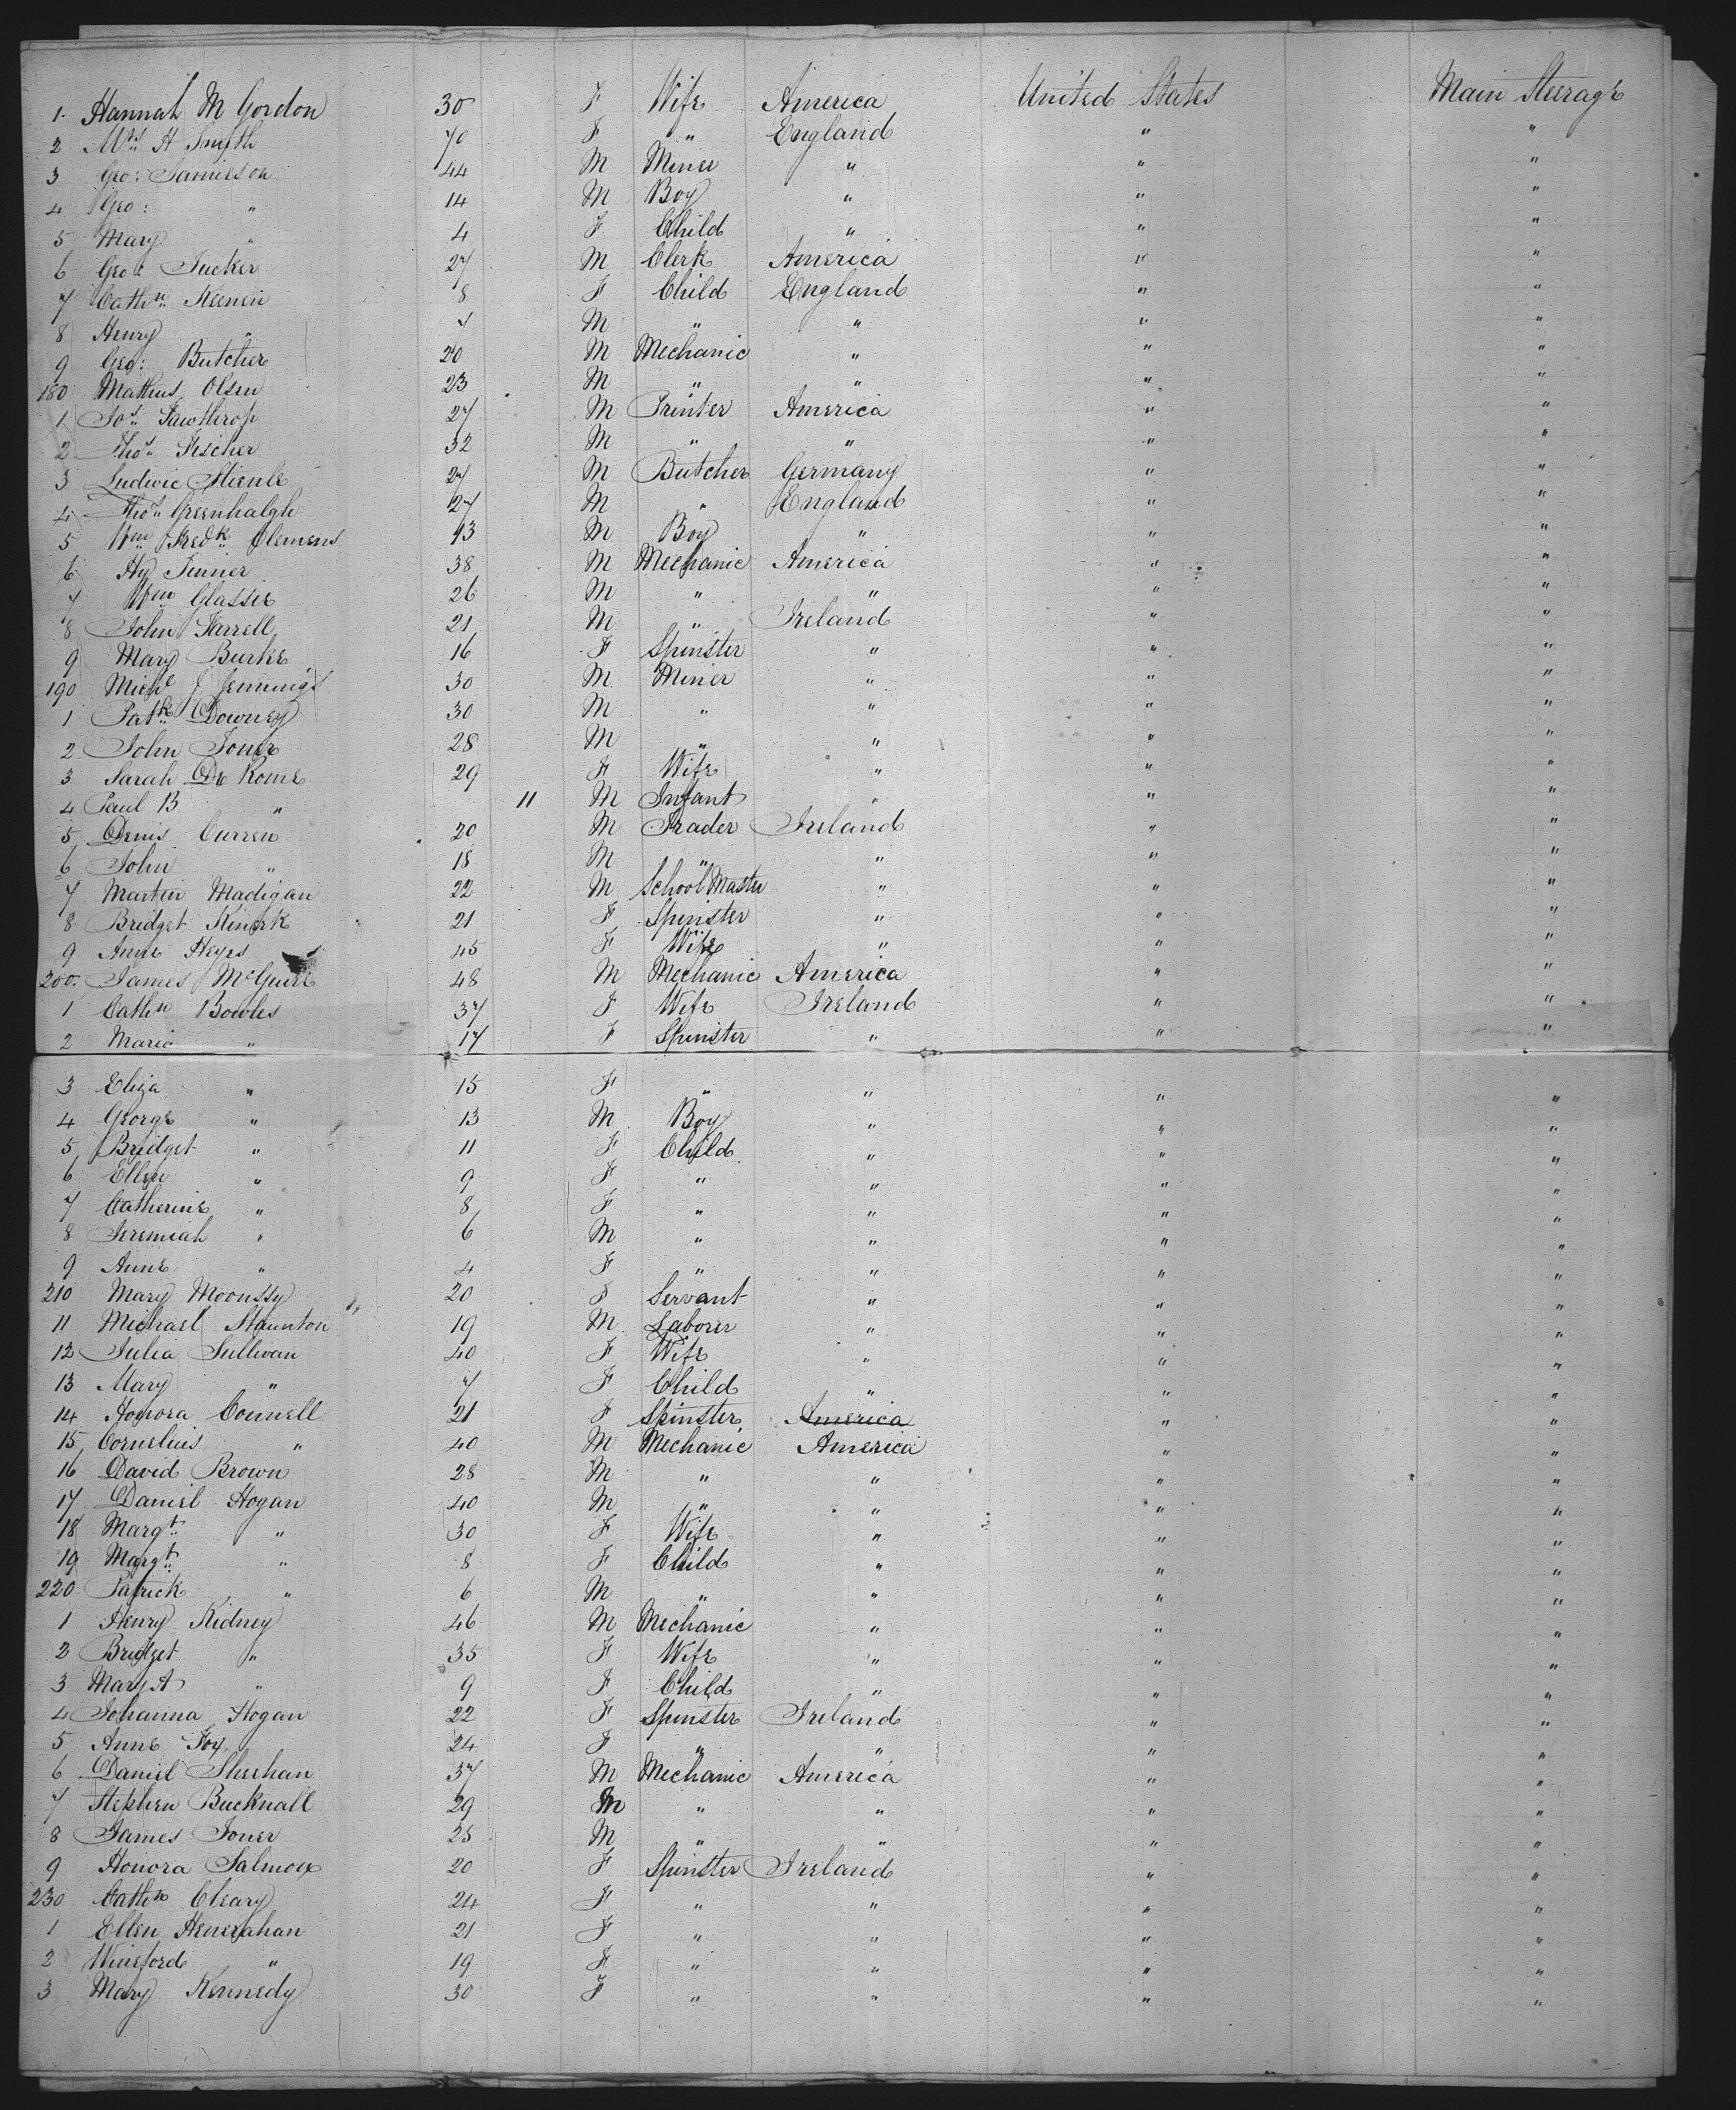 1. Hannah M Gordon 30 F Wife America United States Main Steerage
2 Mrs H Smith 70 F " England " "
3 Geo: Jamieson 44 M Miner " " "
4 Geo: " 14 M Boy " " "
5 Mary " 4 F Child " " "
6 Geo: Tucker 27 M Clerk America " "
7 Cathn Keenen 8 F Child England " "
8 Henry " 7 M " " " "
9 Geo: Butcher 20 M Mechanic " " "
180 Mathius Olsen 23 M " " " "
1 Jos Fawthrop 27 M Printer America " "
2 Thos Fischer 32 M " " " "
3 Ludwic Stienle 27 M Butcher Germany " "
4 Thos Greenhalgh 27 M " England " "
5 Wm Fredk Clemens 13 M Boy " " "
6 Hy Jenner 38 M Mechanic America " "
7 Wm Glasse 26 M " " " "
8 John Farrell 21 M " Ireland " "
9 Mary Burke 16 F Spinster " " "
190 Michl J Jennings 30 M Miner " " "
1 Patk Downey 30 M " " " "
2 John Jones 28 M " " " "
3 Sarah De Rome 29 F Wife " " "
4 Paul B " 11 M Infant " " "
5 Denis Curren 20 M Trader Ireland " "
6 John " 18 M " " " "
7 Martin Madigan 22 M School Master " " "
8 Bridget Kinerk 21 F Spinster " " "
9 Anne Heyes 45 F Wife " " "
200 James McGuire 48 M Mechanic America " "
1 Cathn Bowles 37 F Wife Ireland " "
2 Maria " 17 F Spinster " " "
3 Eliza " 15 F " " " "
4 George " 13 M Boy " " "
5 Bridget " 11 F Child " " "
6 Ellen " 9 F " " " "
7 Catherine " 8 F " " " "
8 Jeremiah " 6 M " " " "
9 Anne " 4 F " " " "
210 Mary 20 F Servant " " "
11 Michael Staunton 19 M Laborer " " "
12 Julia Sullivan 40 F Wife " " "
13 Mary " 7 F Child " " "
14 Honora Connell 21 F Spinster America " "
15 Cornelius " 40 M Mechanic America " "
16 David Brown 28 M " " " "
17 Daniel Hogan 40 M " " " "
18 Margt " 30 F Wife " " "
19 Margt " 8 F Child " " "
220 Patrick " 6 M " " " "
1 Henry Kidney 46 M Mechanic " " "
2 Bridget " 35 F Wife " " "
3 Mary A " 9 F Child " " "
4 Johanna Hogan 22 F Spinster Ireland " "
5 Anne Foy 24 F " " " "
6 Daniel Sheehan 37 M Mechanic America " "
7 Stephen Bucknall 29 M " " " "
8 James Jones 25 M " " " "
9 Honora Salmon 20 F Spinster Ireland " "
230 Cathn Cleary 24 F " " " "
1 Ellen Henerahan 21 F " " " "
2 Wineford " 19 F " " " "
3 Mary Kennedy 30 F " " " "